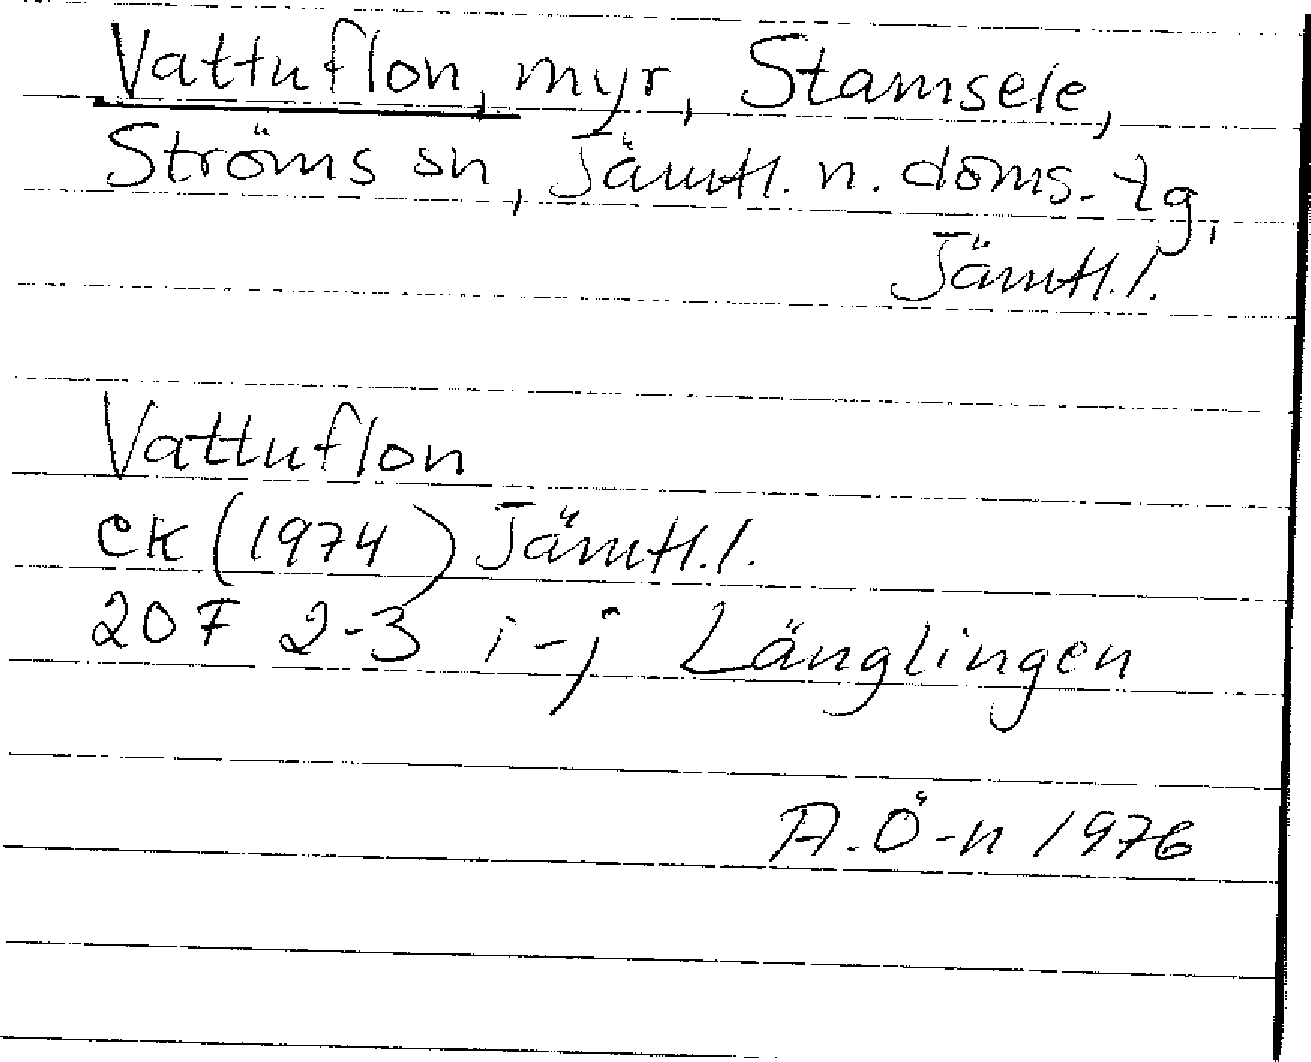 Vattuflon, myr, Stamsele,
Ströms sn, Jämtl. n. doms. tg,
Jämtl. l.
Vattuflon
ek (1974) Jämtl. l.
20 F 2-3 i-j Länglingen
A. Ö-n 1976